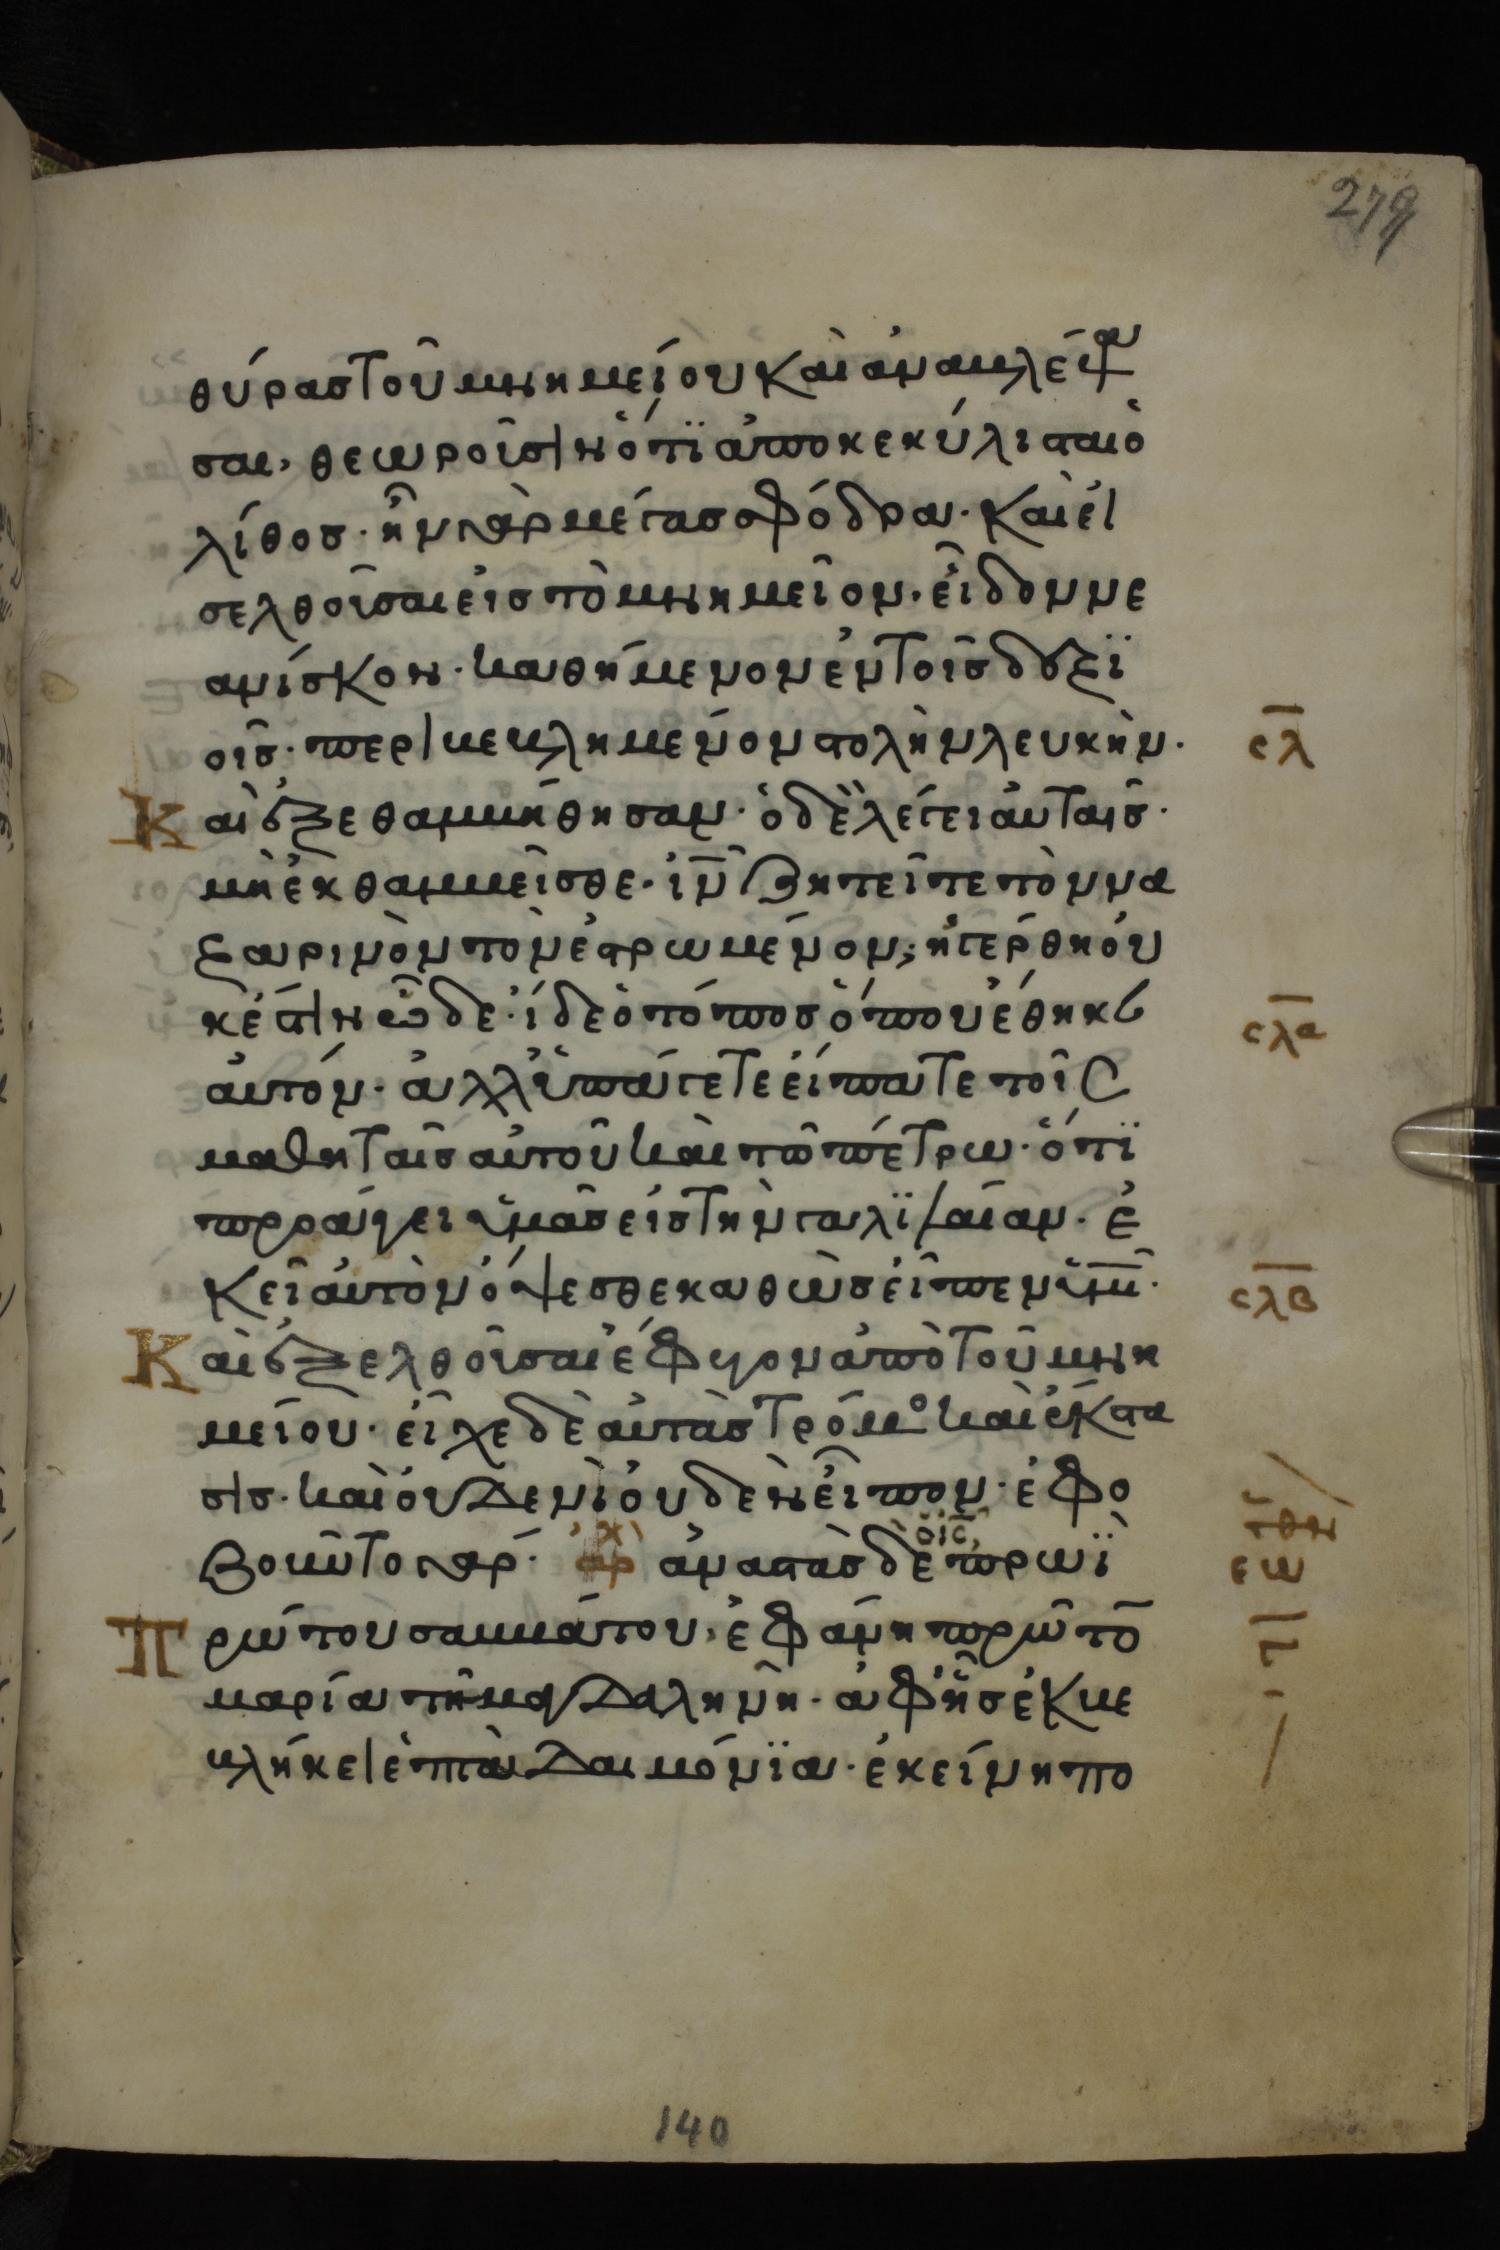 279
θύρας τοῦ μνημείου καὶ ἀναβλέψα
σαι, θεωροῦσιν ὅτϊ ἀποκεκύλισται ὁ
λίθος· ἦν γὰρ μέγας σφόδρα· καὶ εἰ
σελθοῦσαι εἰς τὸ μνημεῖον· εἶδον νε
ανίσκον· καθήμενον ἐν τοῖς δεξϊ
οῖς· περιβεβλημένον στολὴν λευκὴν·
σλ
Καὶ ἐξεθαμβήθησαν· ὁ δὲ λέγει αὐταῖς·
μὴ ἐκθαμβεῖσθε· ἰν ζητεῖτε τὸν να
ζαρινὸν τὸν ἐστρωμένον; ἠγέρθη οὐ
κέστιν ὧδε· ἴδε ὁ τόπος ὅπου ἔθηκε
σλα
αὐτόν· ἀλλ' ὑπάγετε εἴπατε τοῖς
μαθηταῖς αὐτοῦ καὶ τῶ πέτρω· ὅτϊ
προάγει ὑμᾶς εἰς τὴν γαλϊλαίαν· ἐ
κεῖ αὐτὸν ὄψεσθε καθὼς εἶπεν ὑμῖν·
σλβ
Καὶ ἐξελθοῦσαι ἔφυγον ἀπὸ τοῦ μνη
μείου· εἶχε δὲ αὐτὰς τρόμος καὶ ἔκστα
σις· καὶ οὐδενὶ οὐδὲν εἶπον· ἐφο
βοῦντο γάρ· ἀρχ ἀναστὰς δὲ ὁ ις πρωῒ
Πρώτου σαββάτου, ἐφάνη πρῶτο
μαρία τῆ μαγδαληνῆ· ἀφ' ἧς ἐκβε
βλήκει ἑπτὰ δαιμόνϊα· ἐκείνη πο
140